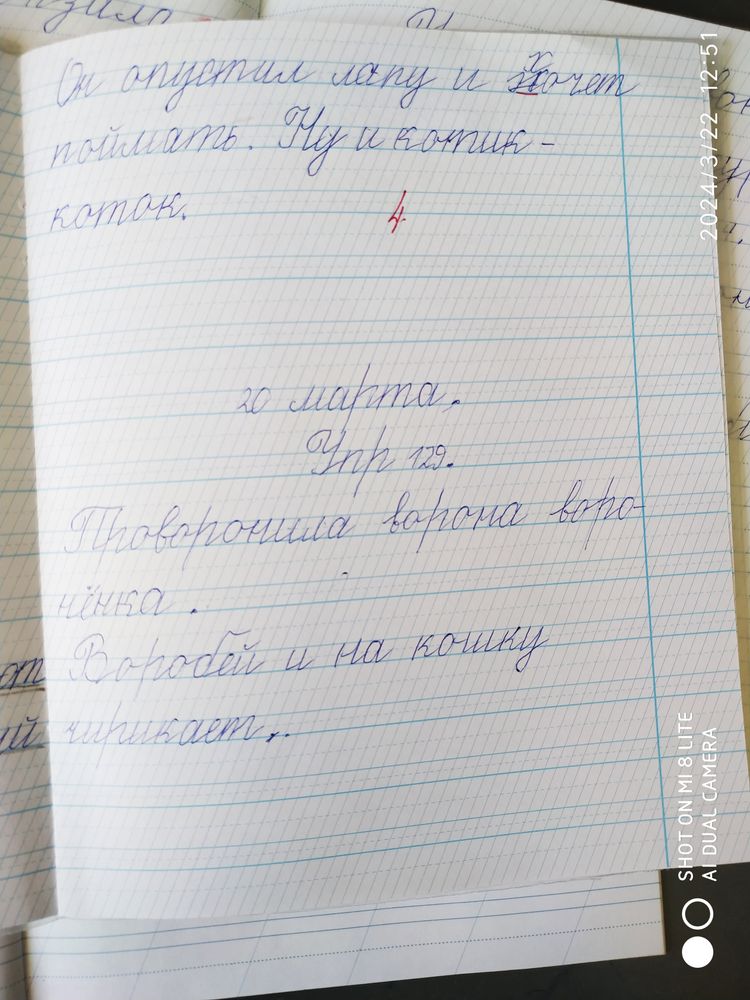 Он опустил лапу и хочет
поймать. Ну и котик-
коток.
4
20 марта.
Упр 129.
Проворонила ворона воро-
нёнка.
Воробей и на кошку
чирикает.
2024/3/22 12:51
SHOT ON MI 8 LITE
AI DUAL CAMERA